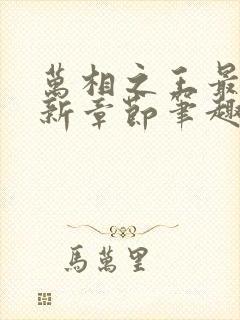 萬相之王最
新章節筆趣
馬萬里